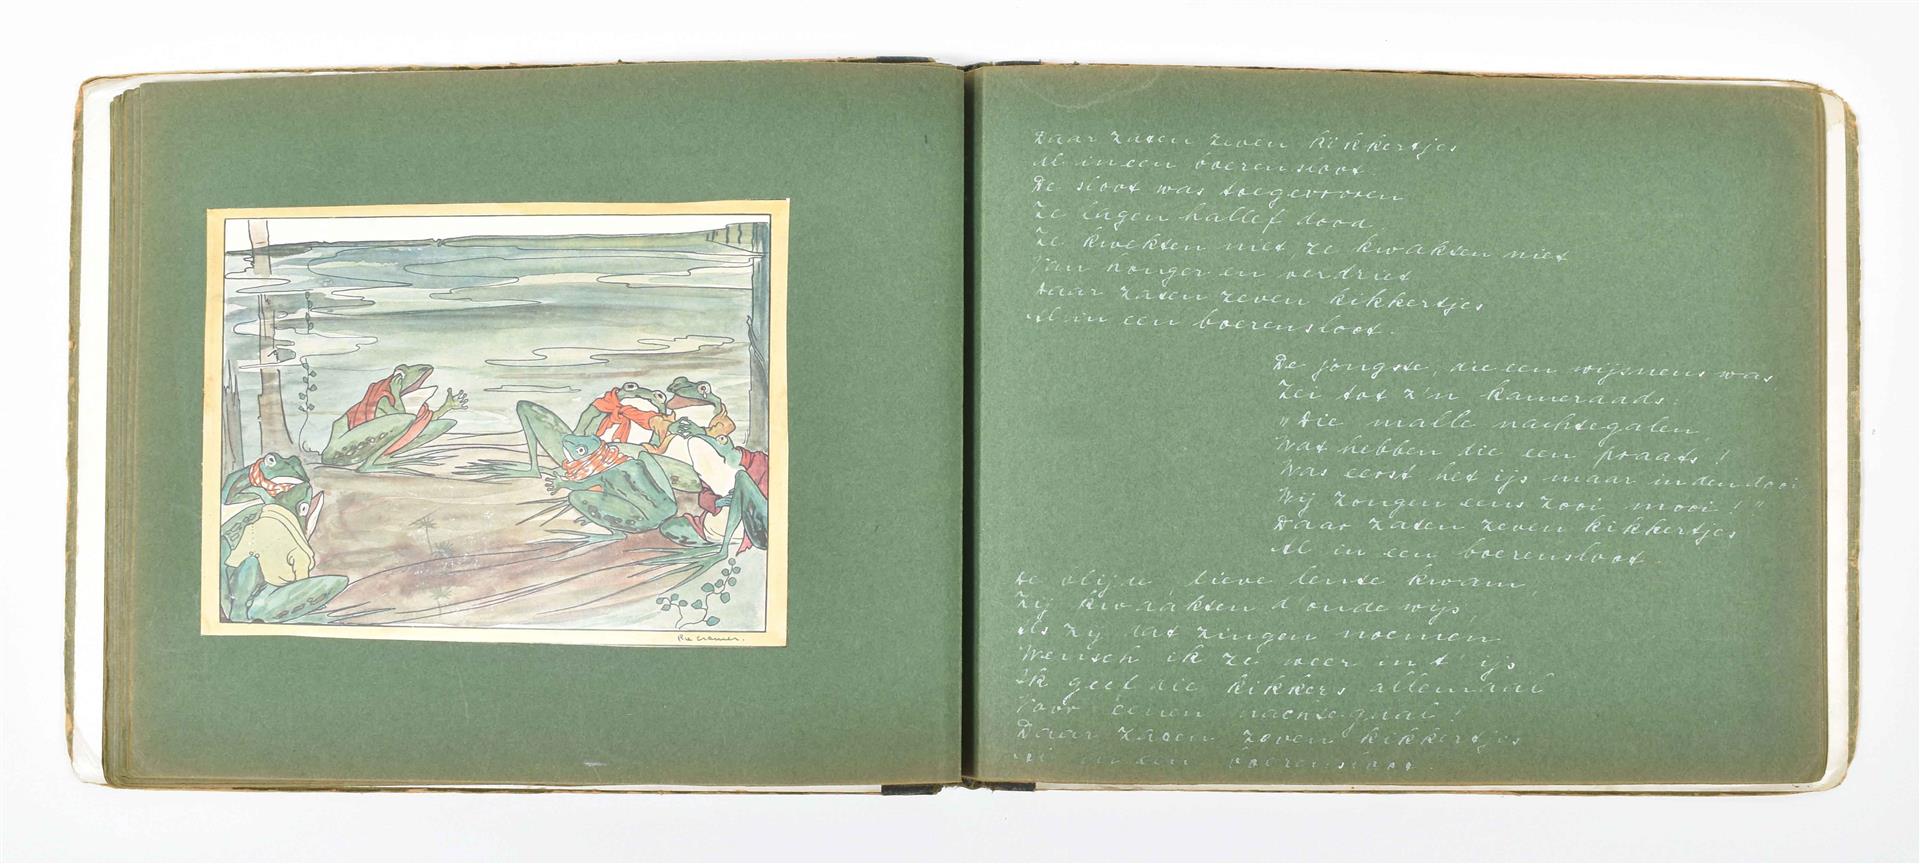 Rie Cramer.
Daar zaten zeven kikkertjes
Al in een boerensloot.
De sloot was toegevroren
Ze lagen hallef dood
Ze kwekten niet, ze kwakten niet
Van honger en verdriet
Daar zaten zeven kikkertjes
Al in een boerensloot.
De jongste, die een wijsneus was
Zei tot z'n kameraads:
"Die malle nachtegalen,
Wat hebben die een praats!
Was eerst het ijs maar in den dooi
Wij zongen eens zooi mooi!"
Daar zaten zeven kikkertjes
Al in een boerensloot.
De blijde, lieve lente kwam,
Zij kwaakten d'oude wijs,
Als zij dat zingen noemen
Wensch ik ze weer in t' ijs
Ik geef die kikkers allemaal
Voor éénen nachtegaal!
Daar zaten zeven kikkertjes
Al in een boerensloot.